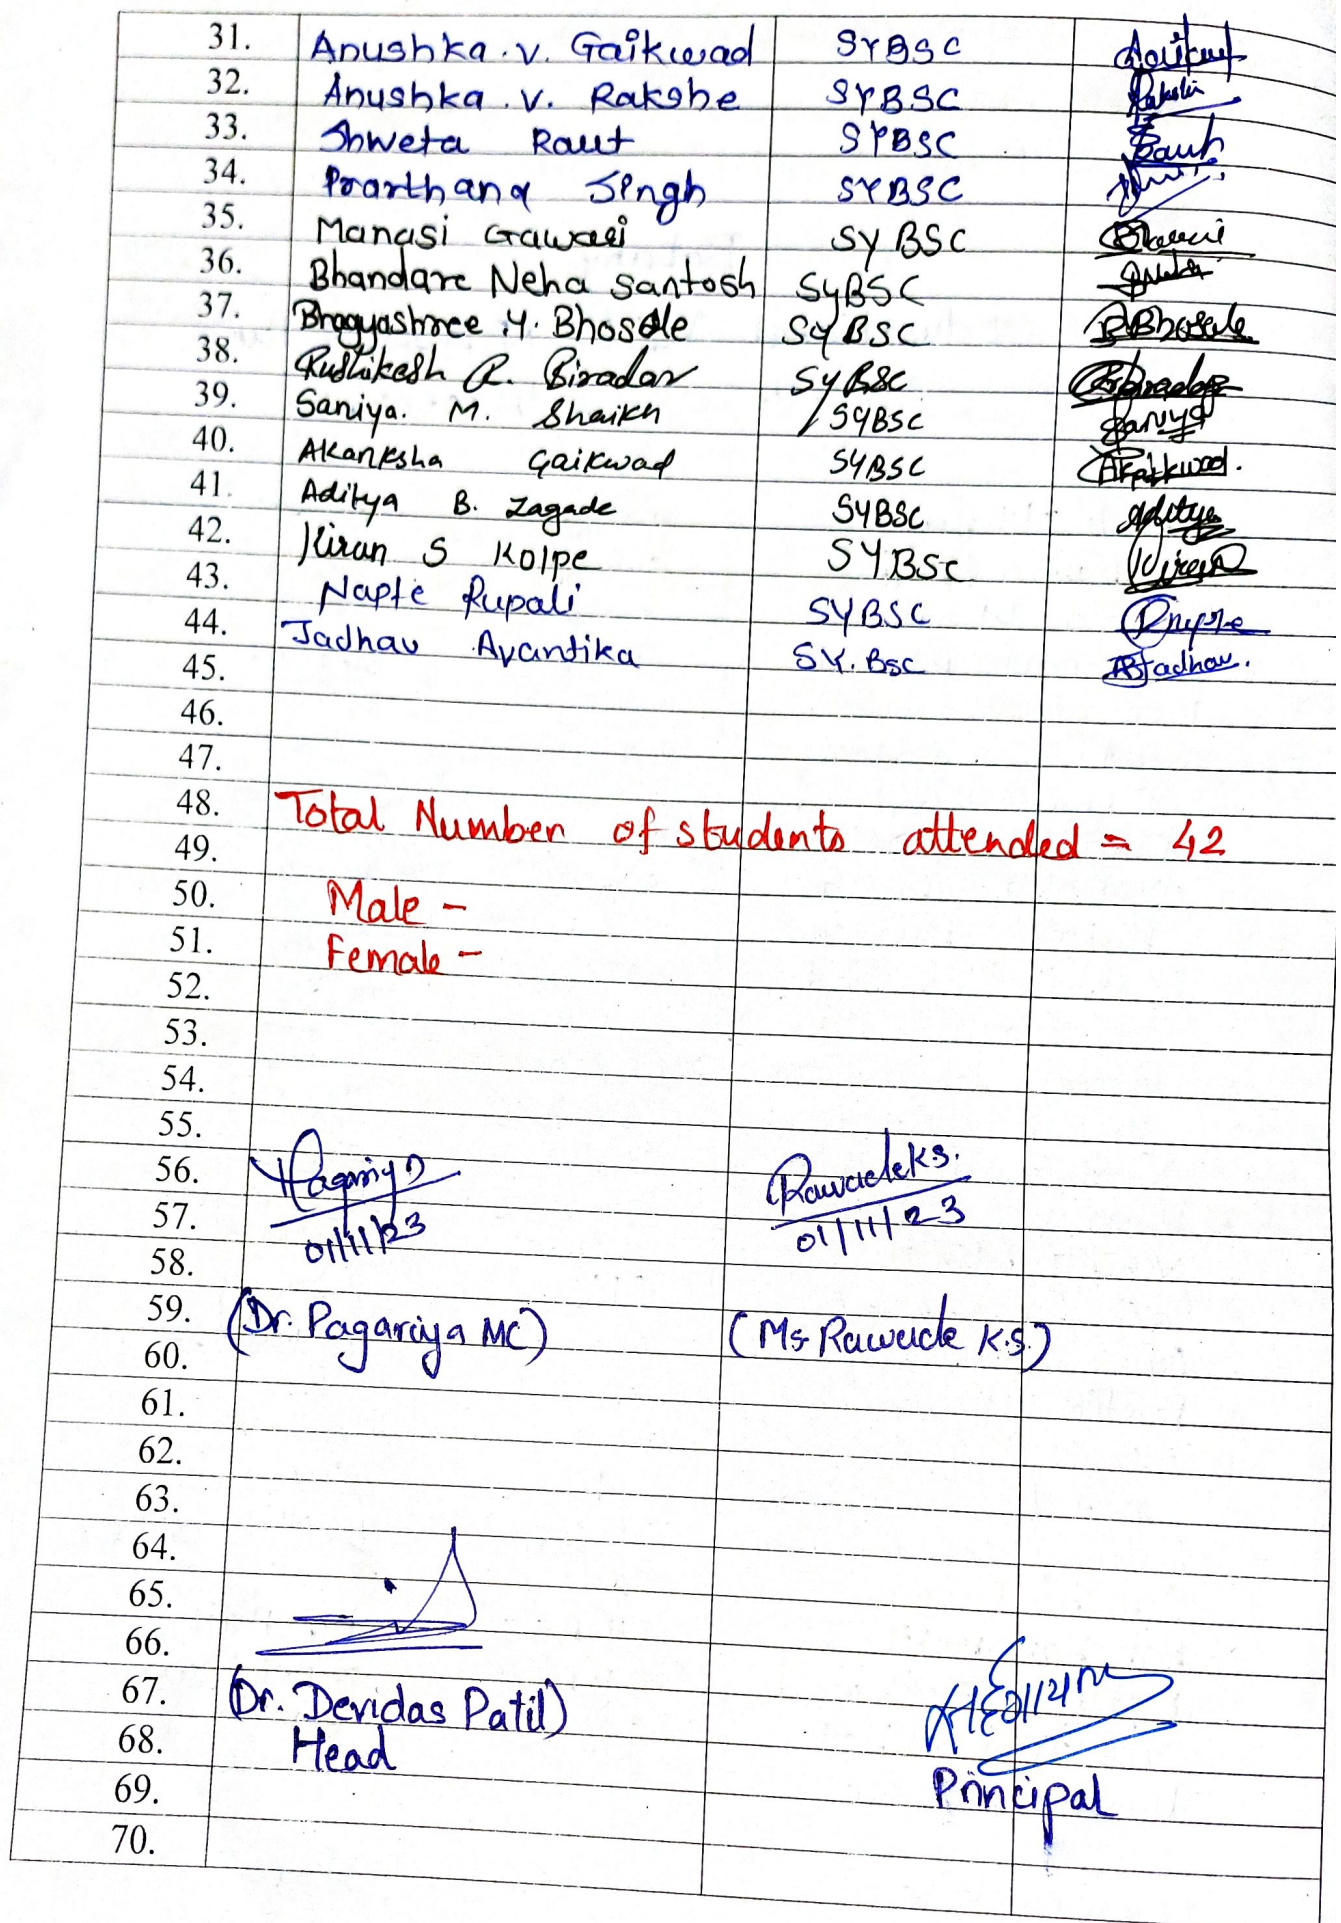 31. Anushka. V. Gaikwad SYBSC Gaikwad
32. Anushka. V. Rakshe SYBSC Rakshe
33. Shweta Raut SYBSC Raut
34. Prarthana Singh SYBSC
35. Manasi Gawari SY BSC
36. Bhandare Neha Santosh SyBSC
37. Bhagyashree .Y. Bhosale SyBSC Bhosale
38. Rushikesh R. Biradar SyBSC
39. Saniya. M. Shaikh SYBSC Saniya
40. Akanksha Gaikwad SYBSC Gaikwad.
41. Aditya B. Zagade SYBSC Aditya
42. Kiran S Kolpe SYBSC Kiran
43. Napte Rupali SYBSC
44. Jadhav Avantika SY. Bsc ABJadhav.
45.
46.
47.
48. Total Number of students attended = 42
49.
50. Male -
51. Female -
52.
53.
54.
55.
56. Pagariya RawadeK.S.
57. 01/11/23 01/11/23
58.
59. (Dr. Pagariya MC) (Ms Rawade K.S.)
60.
61.
62.
63.
64.
65.
66.
67. (Dr. Devidas Patil)
68. Head
69. Principal
70.